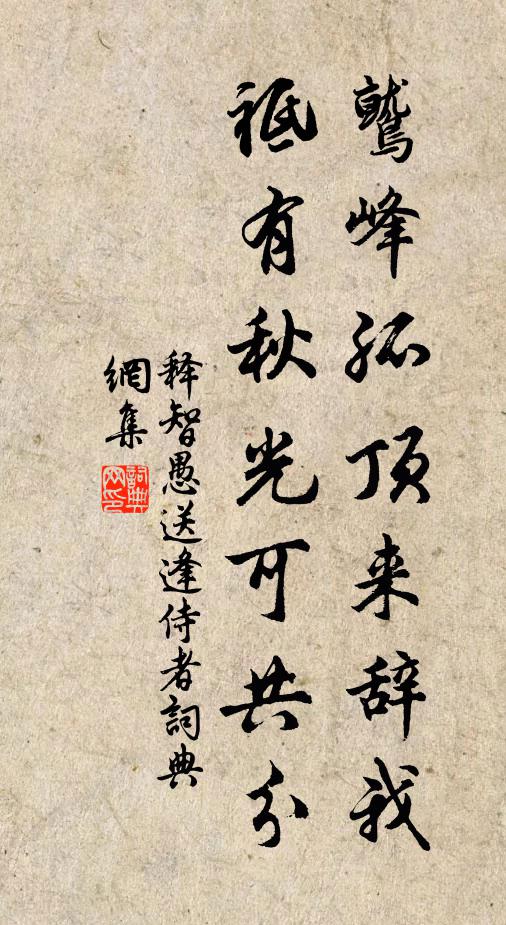 鷲峰孤顶来辞我
祗有秋光可共分
释智愚送逢侍者詞典
網集
詞典
网印